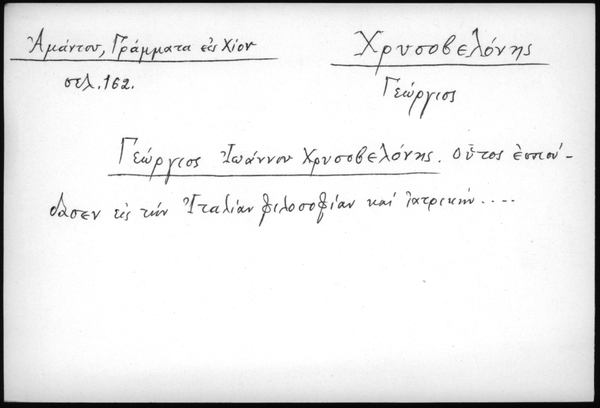 Ἀμάντου, Γράμματα εἰς Χίον
σελ. 162.
Χρυσοβελόνης
Γεώργιος
Γεώργιος Ἰωάννου Χρυσοβελόνης. Οὗτος ἐσπού-
δασεν εἰς τήν Ἰταλίαν φιλοσοφίαν καί ἰατρικήν.....